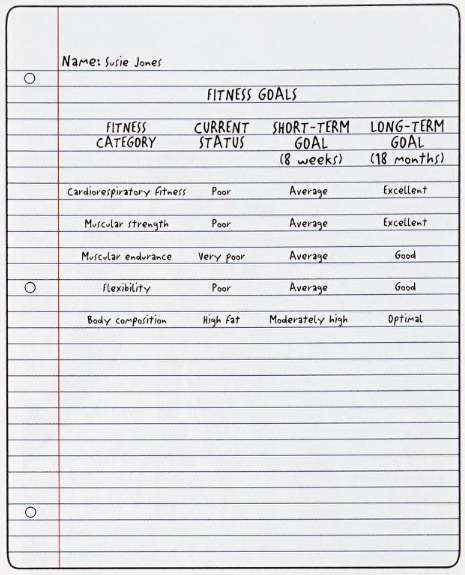 Name: Susie Jones
FITNESS GOALS
FITNESS CATEGORY CURRENT STATUS SHORT-TERM GOAL (8 weeks) LONG-TERM GOAL (18 months)
Cardiorespiratory Fitness Poor Average Excellent
Muscular strength Poor Average Excellent
Muscular endurance Very poor Average Good
Flexibility Poor Average Good
Body composition High fat Moderately high Optimal